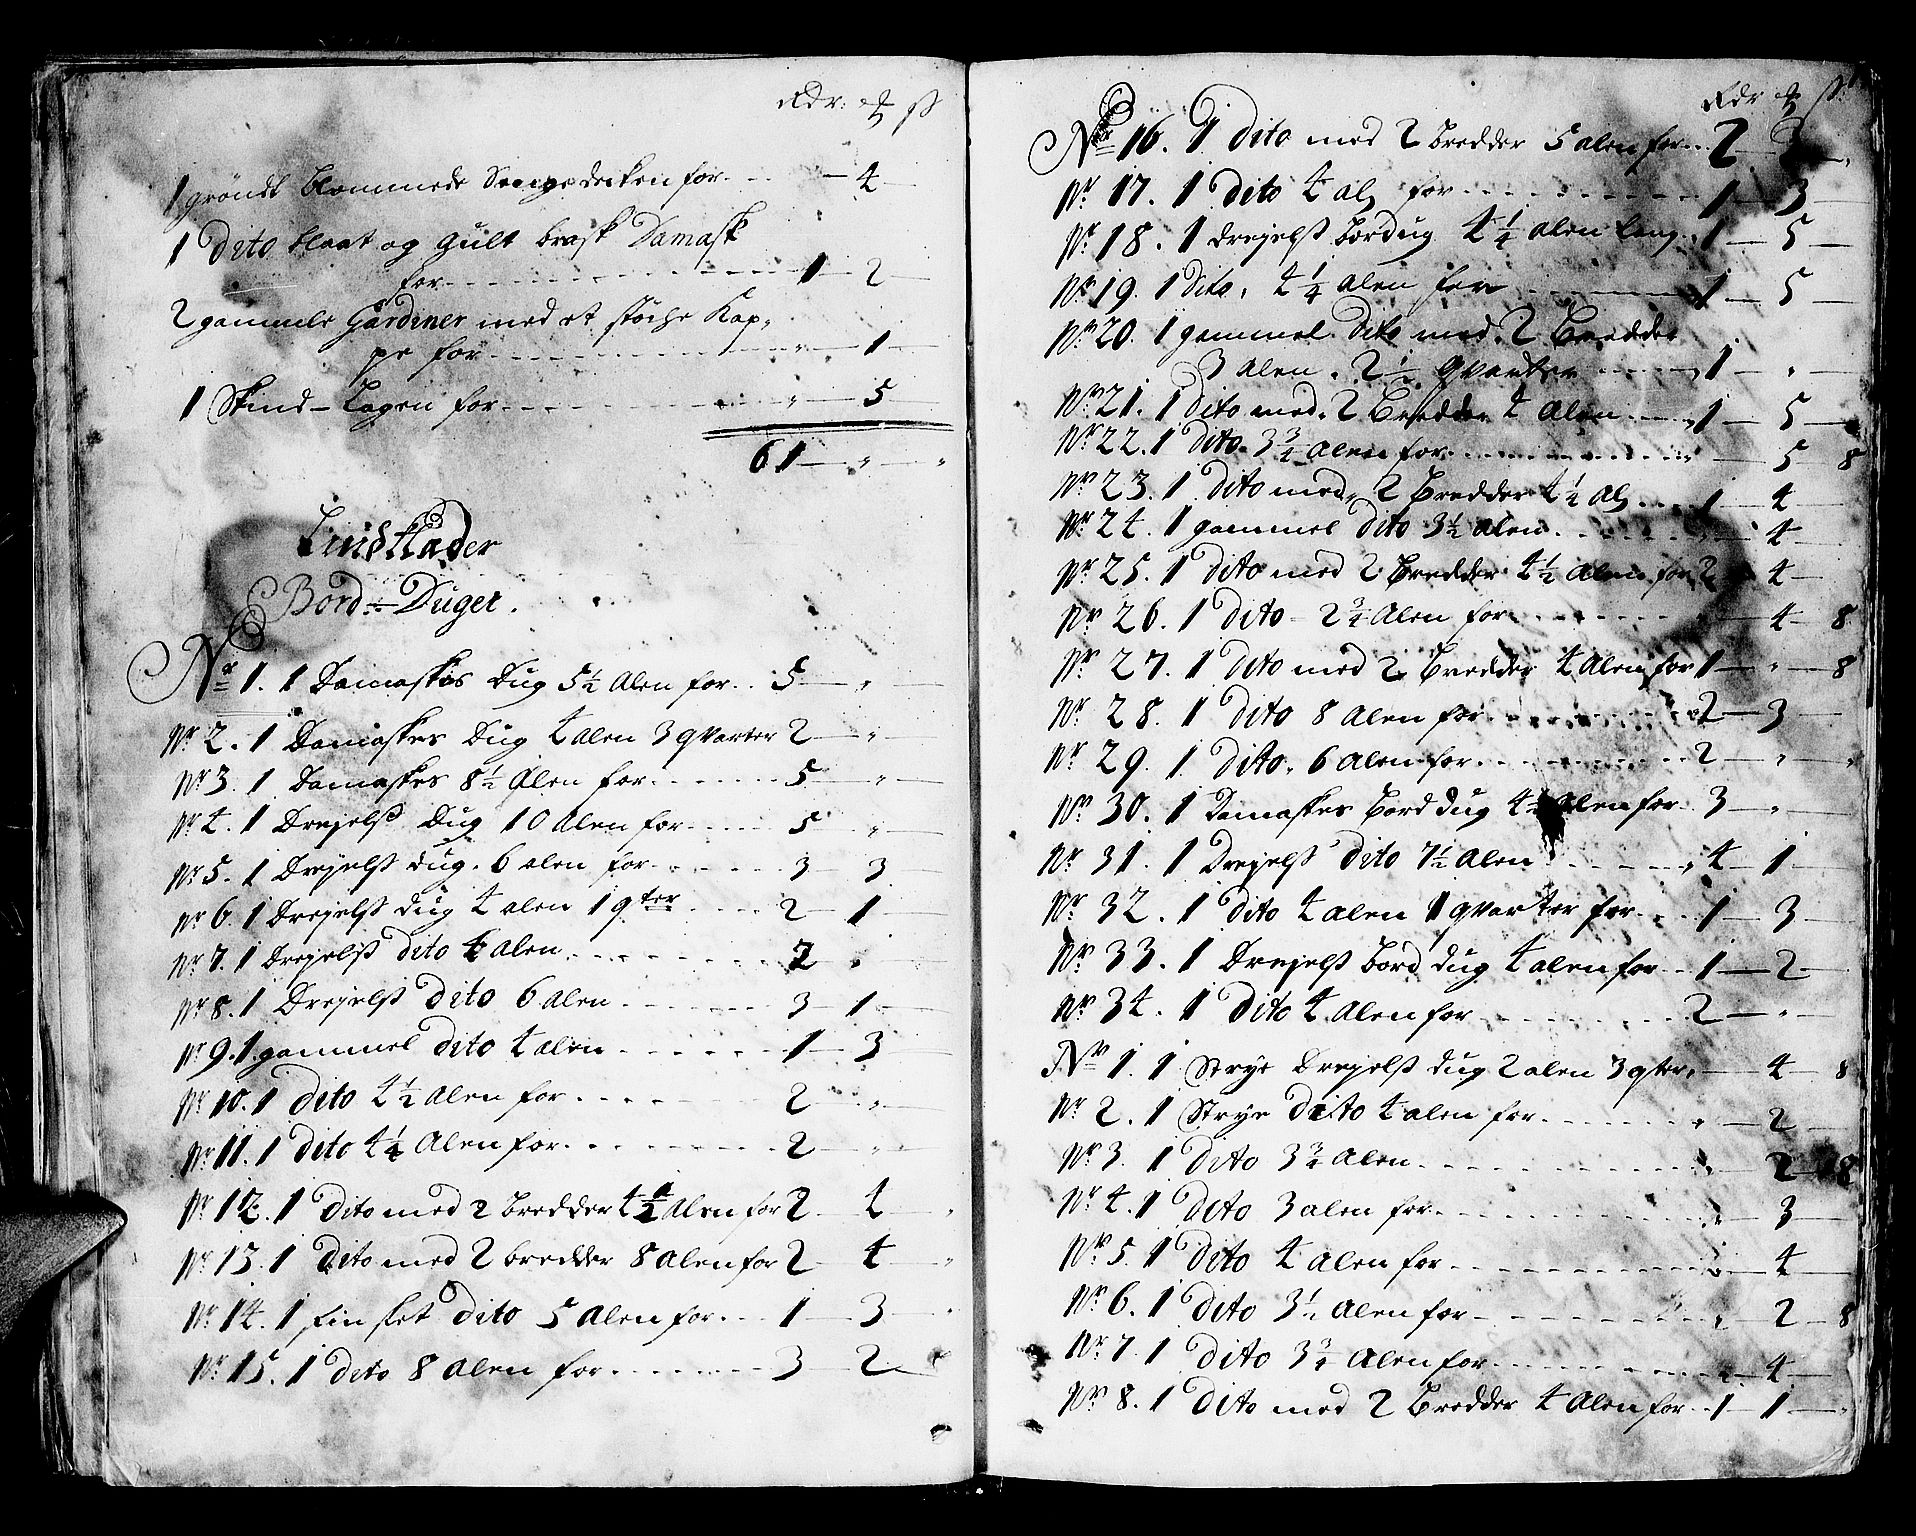 Rdr: ß
1 gröndt blommede Sengedecken for - 4 -
1 Dito blaat og gult brask Damask
for - 1 - 2 -
2 gammele Gardiner med et støche Kap,
pe for - " - 1 -
1 Skind-Lagen for - " - 5 -
61 - " - "
Lindklæder
Bord-Duger.
Nr 1. 1 Damaskes Dug 5½ Alen for .. 5 - "
Nr 2. 1 Damaskes Dug 4 alen 3 qvarter 2 - "
Nr 3. 1 Damaskes 8½ Alen for - 5 - "
Nr 4. 1 Drejelsß Dug 10 Alen for - 5 - "
Nr 5. 1 Drejelsß dug. 6 alen for - 3 - 3 -
Nr 6. 1 Drejelsß dug 4 alen 1 qter - 2 - 1 -
Nr 7. 1 Drejelsß dito 4 alen - 2 "
Nr 8. 1 Drejelsß dito 6 alen - 3 - 1 -
Nr 9. 1 gammel dito 4 alen - 1 - 3 -
Nr 10. 1 dito 4½ Alen for - 2 - "
Nr 11. 1 dito 4¼ Alen for - 2 - "
Nr 12. 1 Dito med 2 bredder 4½ Alen for 2 - 4 - "
Nr 13. 1 Dito med 2 bredder 8 Alen for 2 - 4 - "
Nr 14. 1 fin slet dito 5 Alen for - 1 - 3 - "
Nr 15. 1 dito 8 Alen for - 3 - 2 -
Rdr ß
Nr 16. 1 dito med 2 bredder 5 alen for .. 2 - 3 - "
Nr 17. 1 dito 4 al for - 1 - 3 -
Nr 18. 1 drejelsß bordug 4¼ alen lang - 1 - 5 -
Nr 19. 1 dito, 4¼ alen for - 1 - 5 -
Nr 20. 1 gammel dito med 2 Bredder
3 alen. 2½ qvarter - 1 - " -
Nr 21. 1 dito med 2 Bredder 4 Alen - 1 - 5 -
Nr 22. 1 dito 3¾ Alen for - " - 5 8
Nr 23. 1 dito med 2 Bredder 4¼ Al - 1 - 4 -
Nr 24. 1 gammel dito 3½ alen - 4 -
Nr 25. 1 dito med 2 Bredder 4½ Alen for 2 - 4 -
Nr 26. 1 dito - 2¾ Alen for - 4 - 8
Nr 27. 1 dito med 2 Bredder 4 Alen for 1 - " - 8
Nr 28. 1 dito 8 Alen for - 2 - 3 -
Nr 29. 1 dito. 6 Alen for - 2 - " - "
Nr 30. 1 Damaskes Bord dug 4½ Alen for - 3 - "
Nr 31. 1 Drejelsß dito 7½ Alen - 4 - 1 -
Nr 32. 1 dito 4 Alen 1 qvarter for - 1 - 3 -
Nr 33. 1 Drejelsß Bord dug 4 alen for - 1 - 2 -
Nr 34. 1 dito 4 Alen for - 2 - " -
Nr 1. 1 Strye Drejelsß dug 2 alen 3 qter, - 4 - 8
Nr 2. 1 Strye dito 4 alen for - " - 2 -
Nr 3. 1 dito 3¾ Alen - 2 - 8
Nr 4. 1 dito 3 alen for - " - 3 -
Nr 5. 1 dito 4 Alen for - " - 4 -
Nr 6. 1 dito 3½ Alen for - " - 2 - 8
Nr 7. 1 dito 3¾ Alen for - " - 4 -
Nr 8. 1 dito med 2 Bredder 4 Alen for - 1 - 1 - "